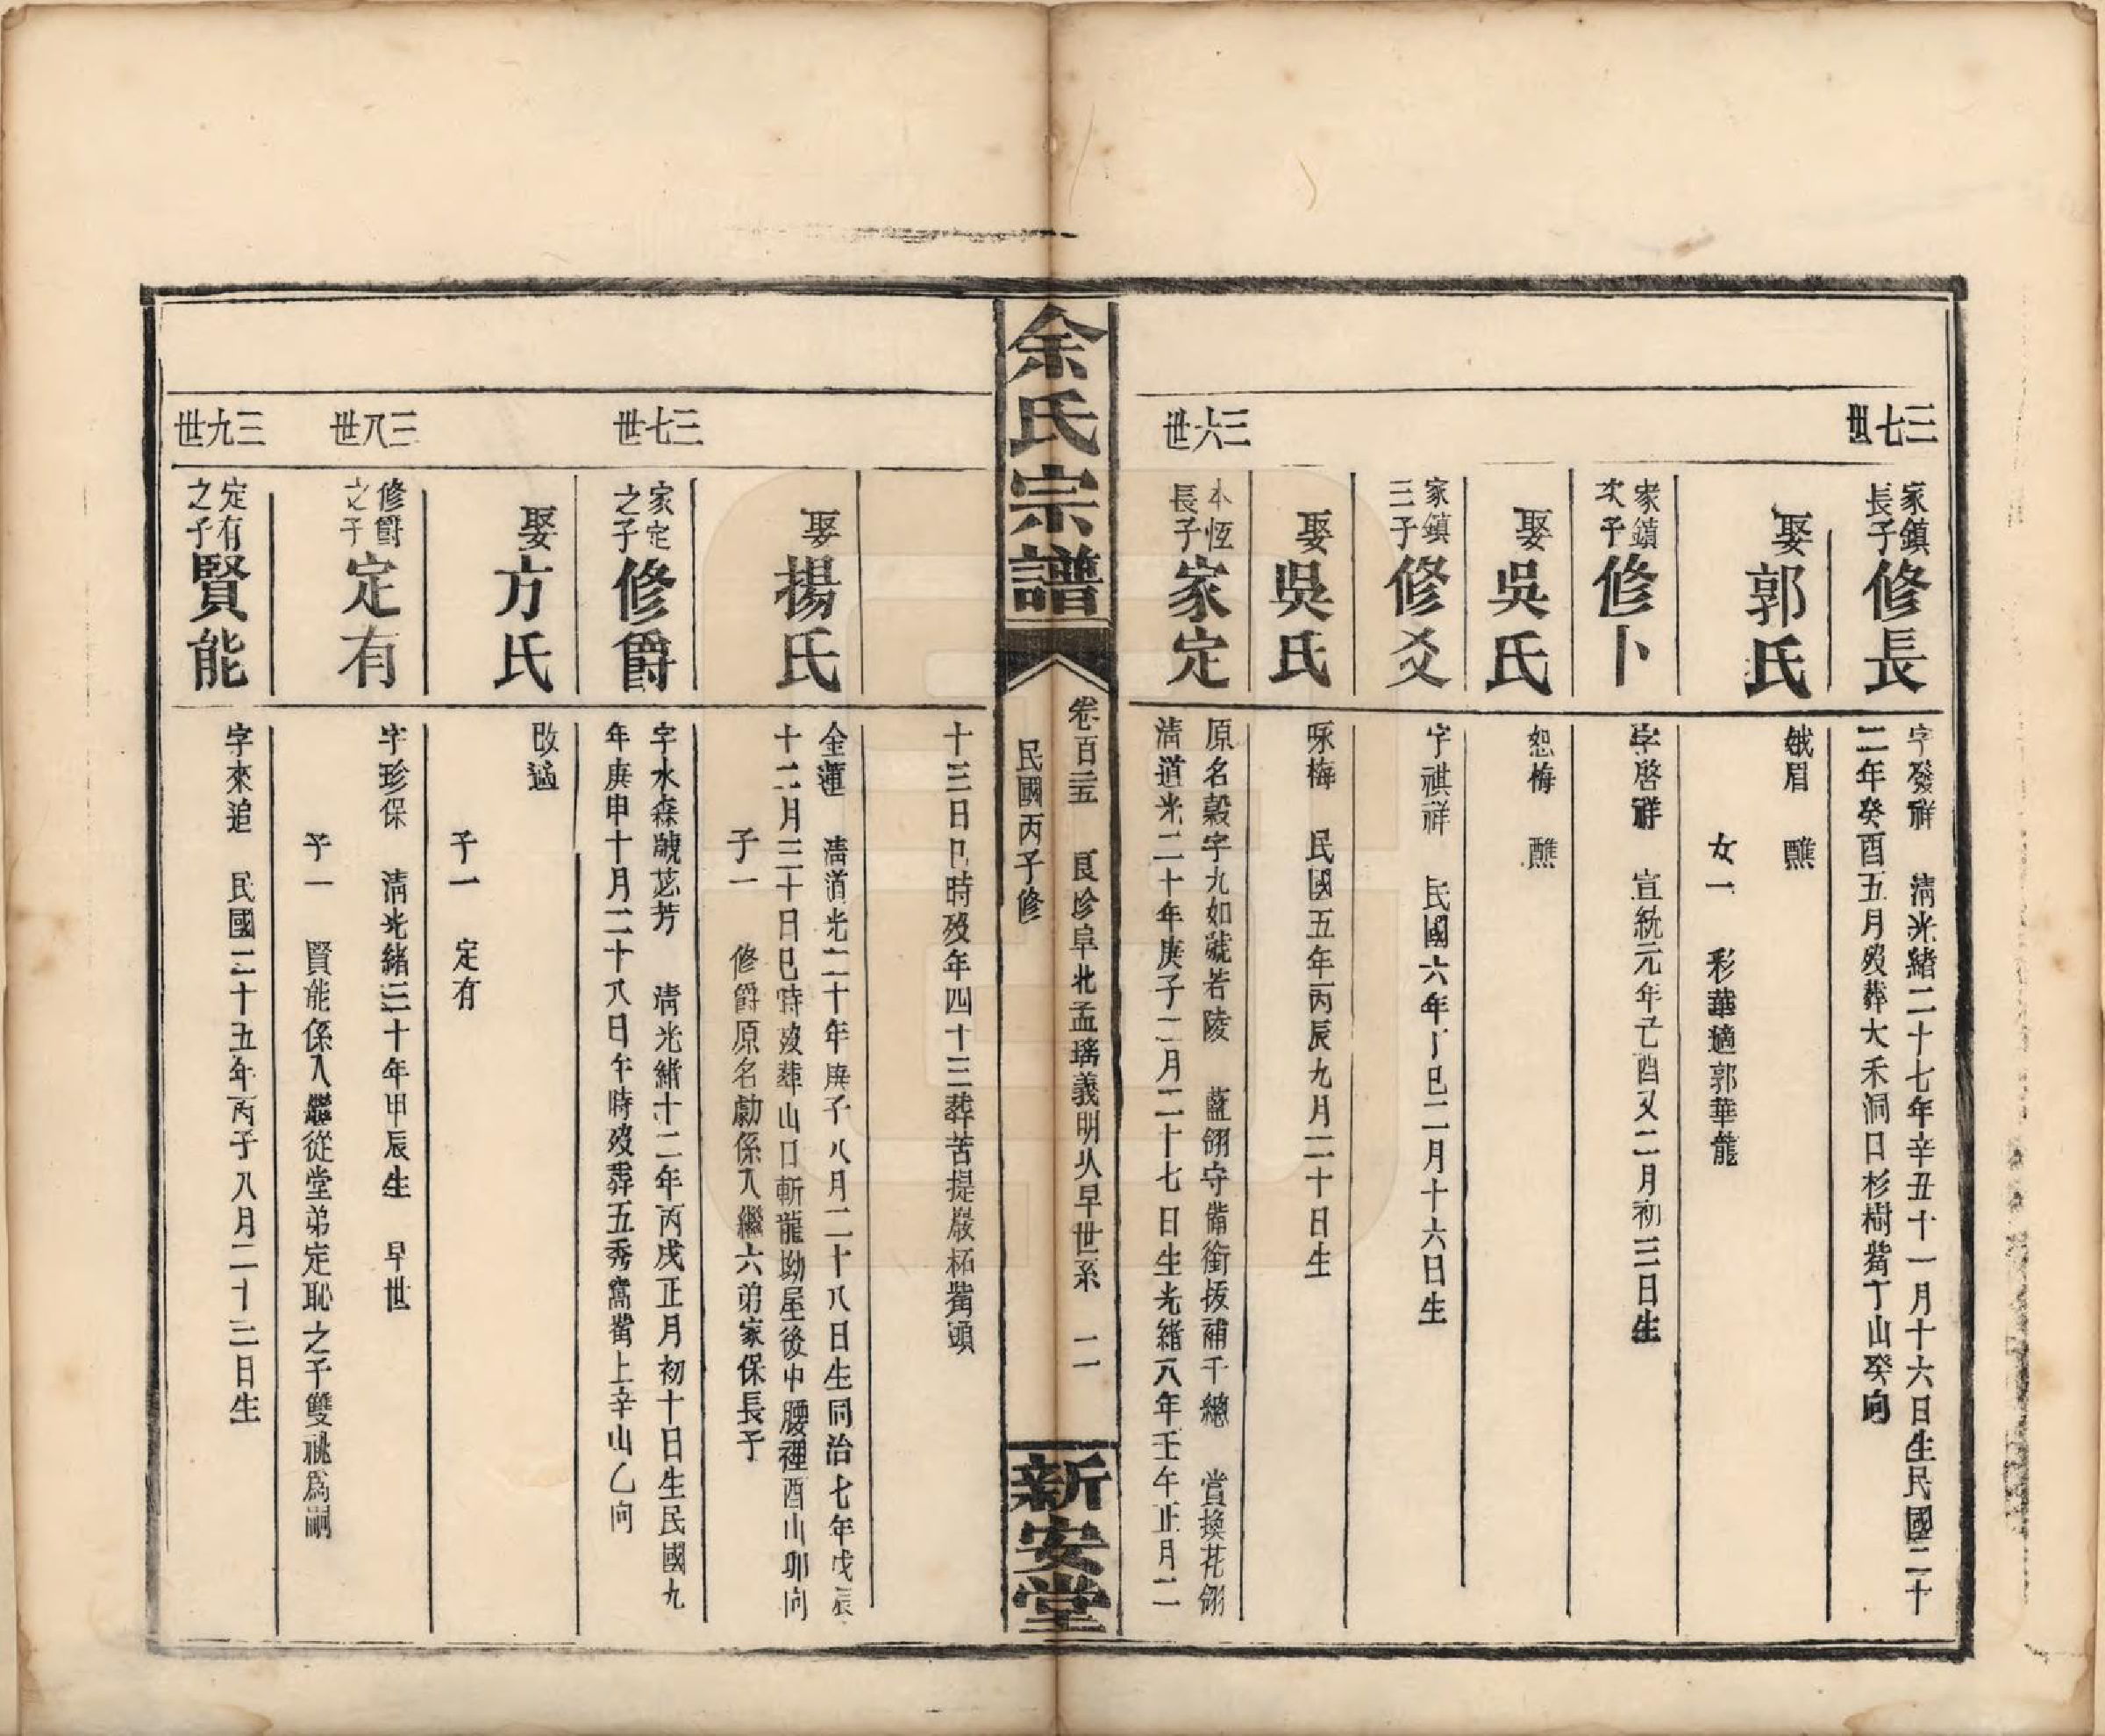 三七世
家鎮長子
修長
字發祥　清光緒二十七年辛丑十一月十六日生民國二十
二年癸酉五月歿葬大禾洞口杉樹嘴丁山癸向
娶郭氏
娥眉　醮
女一　彩華適郭華龍
家鎮次子
修卜
字啓祥　宣統元年己酉又二月初三日生
娶吳氏
恕梅　醮
家鎮三子
修爻
字祺祥　民國六年丁巳二月十六日生
娶吳氏
咏梅　民國五年丙辰九月二十日生
三六世
本恆長子
家定
原名穀字九如號若陵　藍翎守備銜拔補千總　賞換花翎
清道光二十年庚子二月二十七日生光緒八年壬午正月二
余氏宗譜
卷百三五　良珍阜北孟瑤義明㕥早世系　二
民國丙子修
新安堂
十三日巳時歿年四十三葬苦提嚴柘嘴頭
娶揚氏
金蓮　清道光二十年庚子八月二十八日生同治七年戊辰
十二月三十日巳時歿葬山口斬龍坳屋後中腰裡酉山卯向
子一　修爵原名勳係入繼六弟家保長子
三七世
家定之子
修爵
字水森號苾芳　清光緒十二年丙戌正月初十日生民國九
年庚申十月二十八日午時歿葬五秀窩嘴上辛山乙向
娶方氏
改適
子一　定有
三八世
修爵之子
定有
字珍保　清光緒三十年甲辰生　早世
子一　賢能係入繼從堂弟定恥之子雙祧爲嗣
三九世
定有之子
賢能
字來追　民國二十五年丙子八月二十三日生